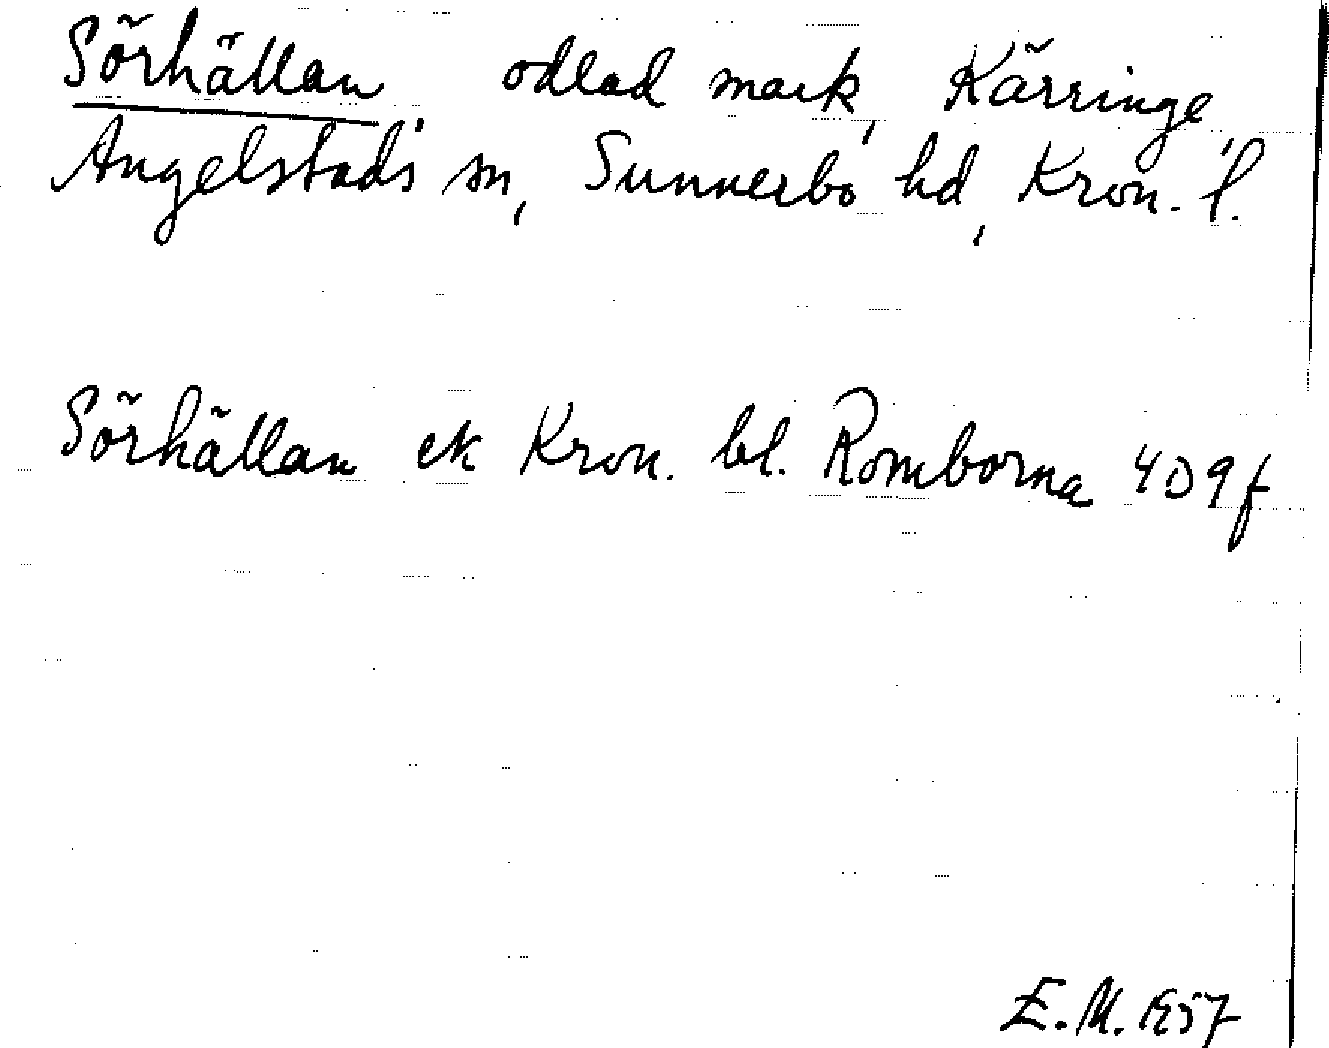 Sörhällan odlad mark, Kärringe,
Angelstads sn, Sunnerbo hd, Kron. l.
Sörhällan ek Kron. bl. Romborna 409f
E.M. 1957